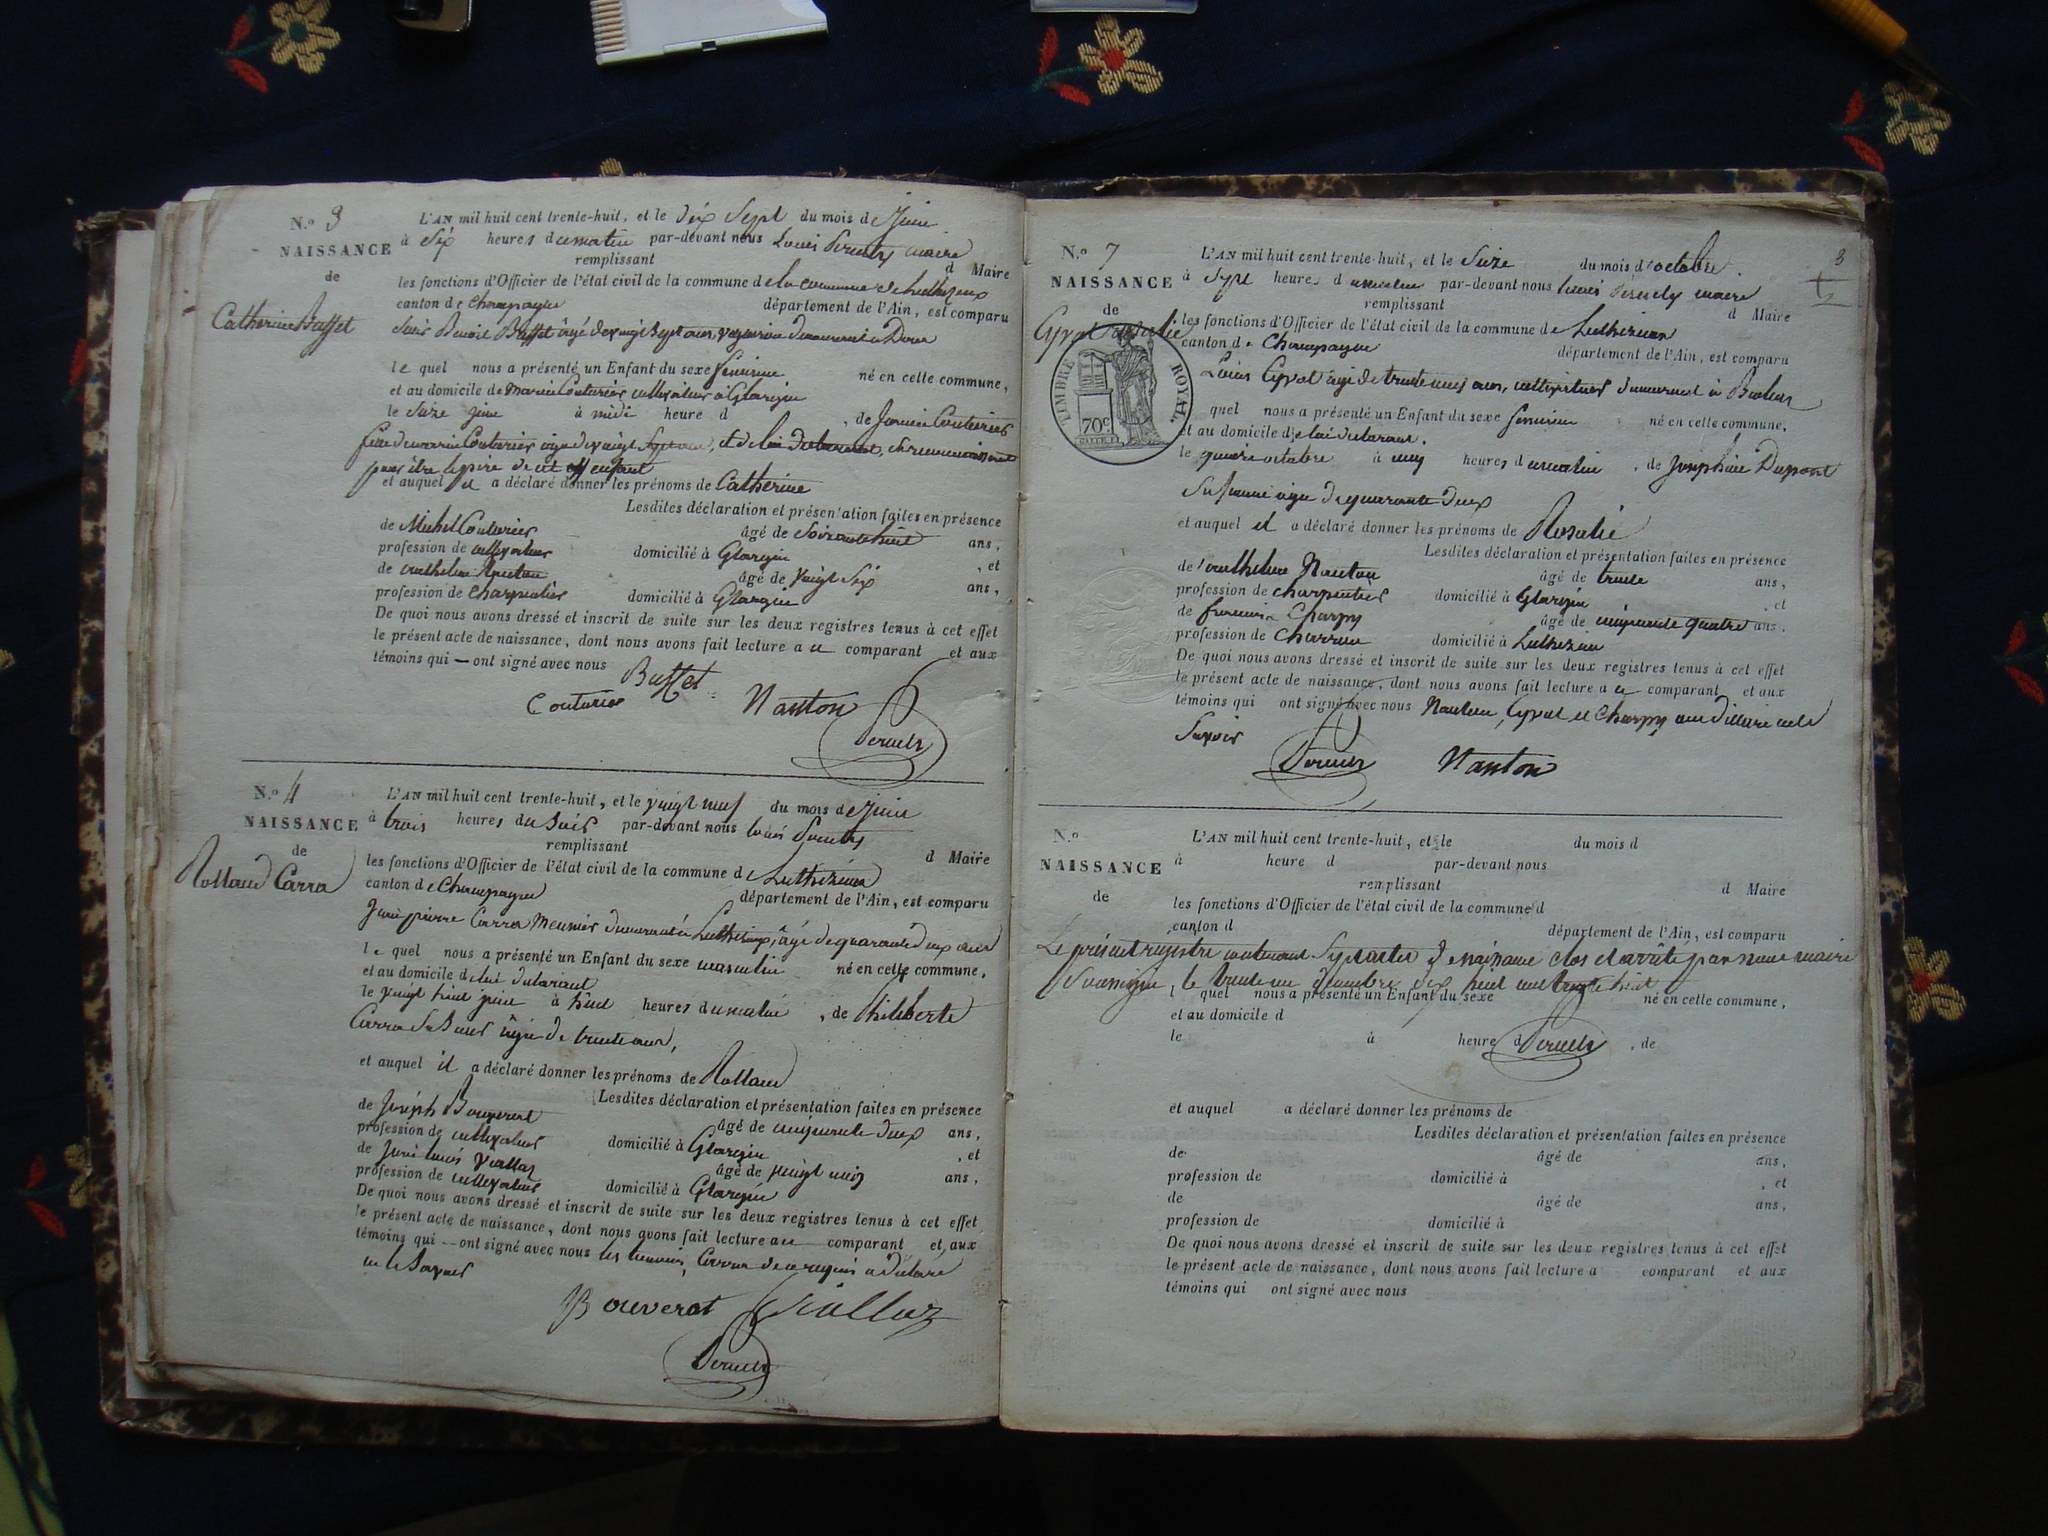 N.o 3
NAISSANCE
de
Catherine Buffet
L'AN mil huit cent trente-huit, et le dix Sept du mois de Juin
à Six heures du matin par-devant nous Louis maire
remplissant d Maire
les fonctions d'Officier de l'état civil de la commune de la commune de
canton de Champagne département de l'Ain, est comparu
Buffet âgé de vingt Sept ans, demeurant a
le quel nous a présenté un Enfant du sexe féminin né en cette commune,
et au domicile de Couturier cultivateur à Glargin
le Seize juin à midi heure d , de Couturier
Couturier agée de vingt et de lui déclarant,
pour être le père de cet enfant
et auquel il a déclaré donner les prénoms de Catherine
Lesdites déclaration et présentation faites en présence
de Michel Couturier âgé de Soixante huit ans,
profession de cultivateur domicilié à Glargin , et
de Nanton âgé de vingt Six ans,
profession de charpentier domicilié à Glargin
De quoi nous avons dressé et inscrit de suite sur les deux registres tenus à cet effet
le présent acte de naissance, dont nous avons fait lecture a u comparant et aux
témoins qui — ont signé avec nous
Buffet
Couturier Nanton
N.o 4
NAISSANCE
de
Rolland Carra
L'AN mil huit cent trente-huit, et le vingt neuf du mois de Juin
à trois heures du Soir par-devant nous Louis
remplissant d Maire
les fonctions d'Officier de l'état civil de la commune de
canton de Champagne département de l'Ain, est comparu
pierre Carra Meunier demeurant à âgé de quarante deux ans
le quel nous a présenté un Enfant du sexe masculin né en cette commune,
et au domicile de lui déclarant
le vingt huit juin à huit heures du matin , de Philiberte
Carra agée de trente ans,
et auquel il a déclaré donner les prénoms de Rolland
Lesdites déclaration et présentation faites en présence
de Joseph Bouverat âgé de cinquante deux ans,
profession de cultivateur domicilié à Glargin , et
de Viallaz âgé de vingt cinq ans,
profession de cultivateur domicilié à Glargin
De quoi nous avons dressé et inscrit de suite sur les deux registres tenus à cet effet
le présent acte de naissance, dont nous avons fait lecture au comparant et aux
témoins qui — ont signé avec nous les témoins, Carra de ce requis a déclaré
ne le Savoir
Bouverat Viallaz
3
N.o 7
NAISSANCE
de
Cyvat Rosalie
TIMBRE ROYAL.
70c.
L'AN mil huit cent trente-huit, et le Seize du mois d'octobre
à Sept heures du matin par-devant nous Louis maire
remplissant d Maire
les fonctions d'Officier de l'état civil de la commune de
canton de Champagne département de l'Ain, est comparu
Louis Cyvat âgé de trente neuf ans, cultivateur demeurant à
quel nous a présenté un Enfant du sexe féminin né en cette commune,
et au domicile de lui déclarant.
le quinze octobre à cinq heures du matin , de Joséphine Dupont
Sa femme agée de quarante deux
et auquel il a déclaré donner les prénoms de Rosalie
Lesdites déclaration et présentation faites en présence
de Nanton âgé de trente ans,
profession de charpentier domicilié à Glargin , et
de Charpy âgé de cinquante quatre ans.
profession de Charron domicilié à
De quoi nous avons dressé et inscrit de suite sur les deux registres tenus à cet effet
le présent acte de naissance, dont nous avons fait lecture a u comparant et aux
témoins qui ont signé avec nous Nanton, Cyvat et Charpy
Savoir
Nanton
N.o
NAISSANCE
de
L'AN mil huit cent trente-huit, et le du mois d
à heure d par-devant nous
remplissant d Maire
les fonctions d'Officier de l'état civil de la commune d
canton d département de l'Ain, est comparu
Le présent registre contenant Sept actes de naissance clos et arrêté par nous maire
Soussigné, le trente un décembre dix huit cent trente huit
l quel nous a présenté un Enfant du sexe né en cette commune,
et au domicile d
le à heure d , de
et auquel a déclaré donner les prénoms de
Lesdites déclaration et présentation faites en présence
de âgé de ans,
profession de domicilié à , et
de âgé de ans,
profession de domicilié à
De quoi nous avons dressé et inscrit de suite sur les deux registres tenus à cet effet
le présent acte de naissance, dont nous avons fait lecture a comparant et aux
témoins qui ont signé avec nous